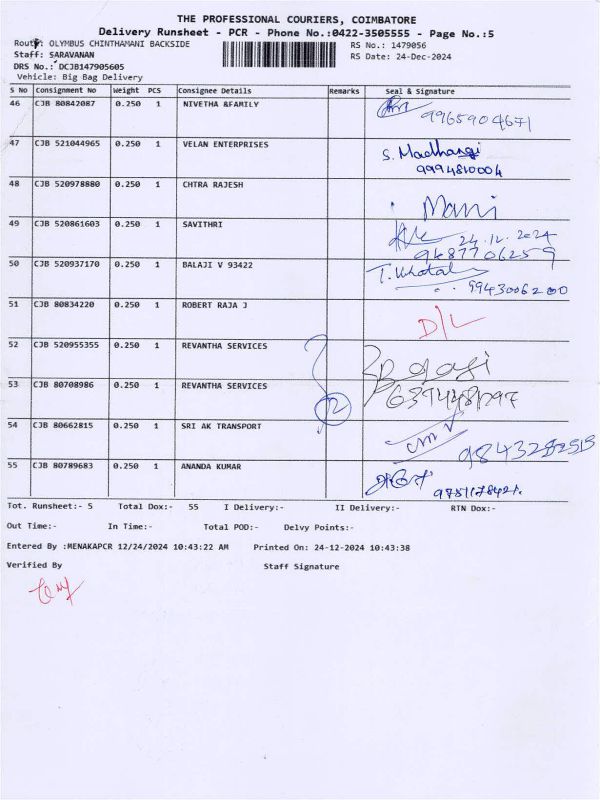 THE PROFESSIONAL COURIERS, COIMBATORE
Delivery Runsheet - PCR - Phone No.:0422-3505555 - Page No.:5
Route: OLYMBUS CHINTHAMANI BACKSIDE
RS No.: 1479056
Staff: SARAVANAN
RS Date: 24-Dec-2024
DRS No.: DCJB147905605
Vehicle: Big Bag Delivery
S No Consignment No Weight PCS Consignee Details Remarks Seal & Signature
46 CJB 80842087 0.250 1 NIVETHA &FAMILY
9965904671
47 CJB 521044965 0.250 1 VELAN ENTERPRISES
S. Madhangi
9994810004
48 CJB 520978880 0.250 1 CHTRA RAJESH
Mani
49 CJB 520861603 0.250 1 SAVITHRI
24.12.2024
9487706259
50 CJB 520937170 0.250 1 BALAJI V 93422
9943006200
51 CJB 80834220 0.250 1 ROBERT RAJA J
D/L
52 CJB 520955355 0.250 1 REVANTHA SERVICES
Balaji
53 CJB 80708986 0.250 1 REVANTHA SERVICES
54 CJB 80662815 0.250 1 SRI AK TRANSPORT
55 CJB 80789683 0.250 1 ANANDA KUMAR
Tot. Runsheet:- 5 Total Dox:- 55 I Delivery:- II Delivery:- RTN Dox:-
Out Time:- In Time:- Total POD:- Delvy Points:-
Entered By :MENAKAPCR 12/24/2024 10:43:22 AM Printed On: 24-12-2024 10:43:38
Verified By Staff Signature